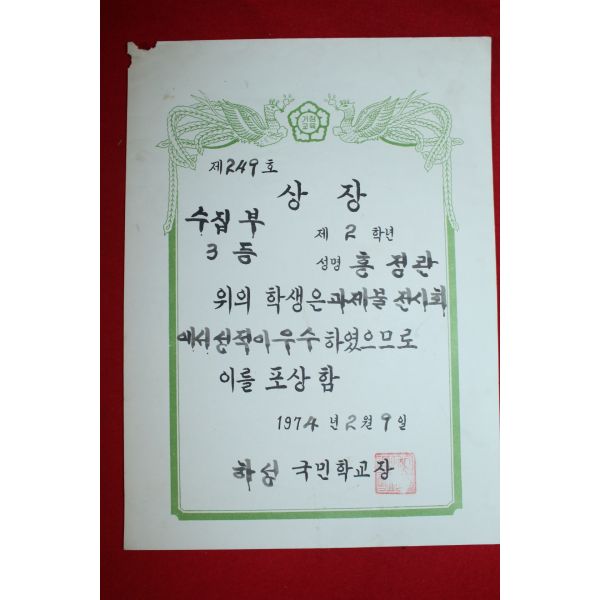 거점
교육
제249호
상장
수집부
제 2 학년
3 등
성명 홍정관
위의 학생은 과제물 전시회
에서 성적이 우수 하였으므로
이를 포상 함
1974 년 2 월 9 일
화성 국민학교장